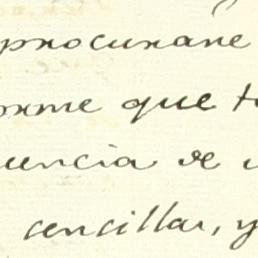 procurare
orme que t
uencia de
sencillas, y